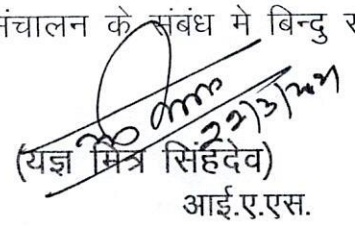 संचालन के संबंध मे बिन्दु
22/3/2021
(यज्ञ मित्र सिंहदेव)
आई.ए.एस.